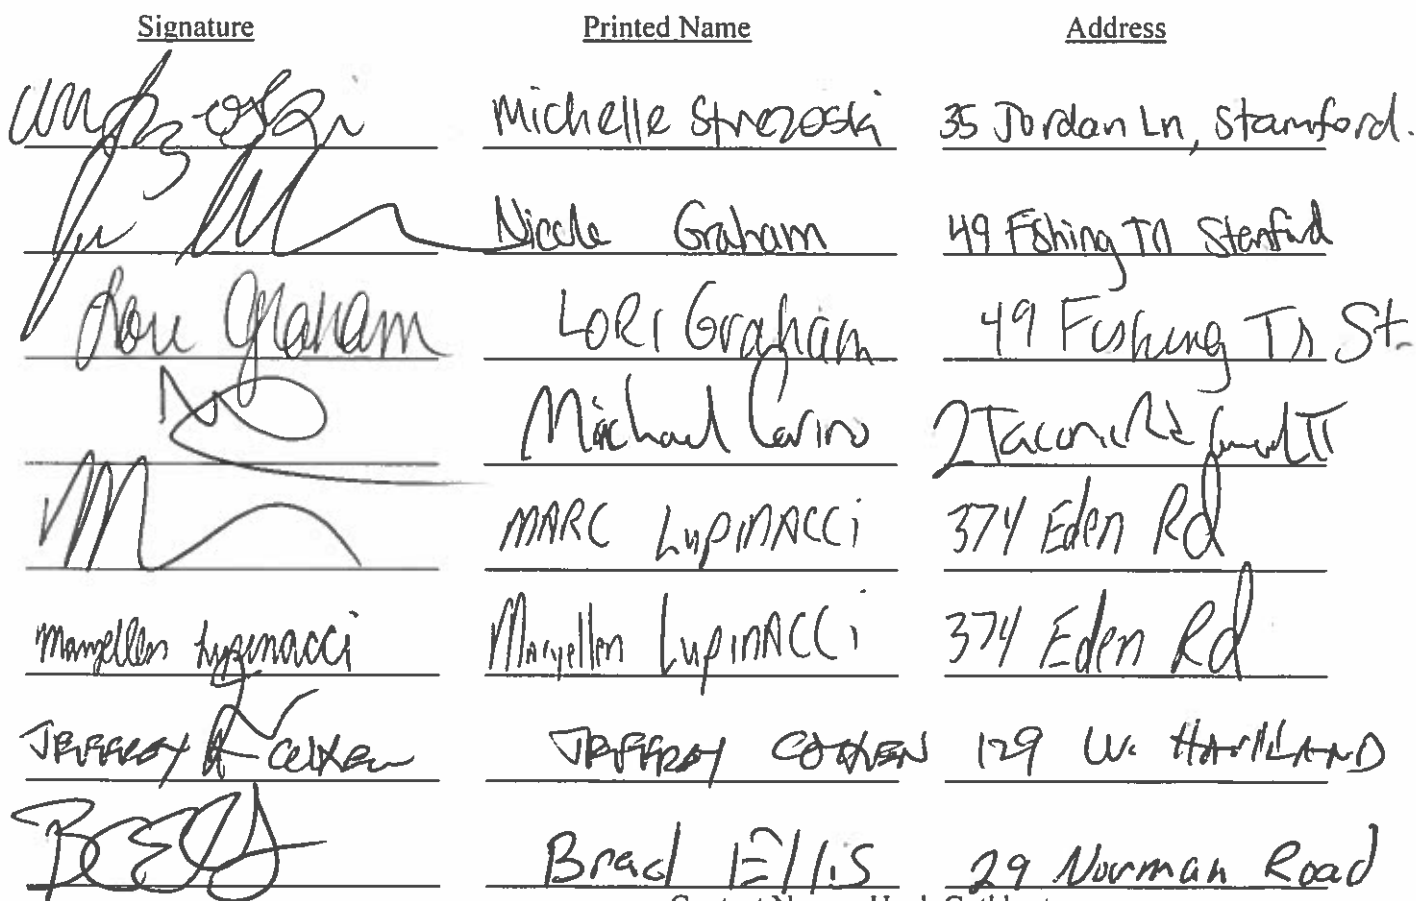 Signature Printed Name Address
Michelle Strezoski 35 Jordan Ln, Stamford.
Nicole Graham 49 Fishing Tr Stamford
Lori Graham LORI Graham 49 Fishing Tr St.
Michael Carino 2 Taconic Rd
MARC LupinACCi 374 Eden Rd
Maryellen Lupinacci Maryellen LupinACCi 374 Eden Rd
JEFFREY COHEN 129 W.
Brad Ellis 29 Norman Road